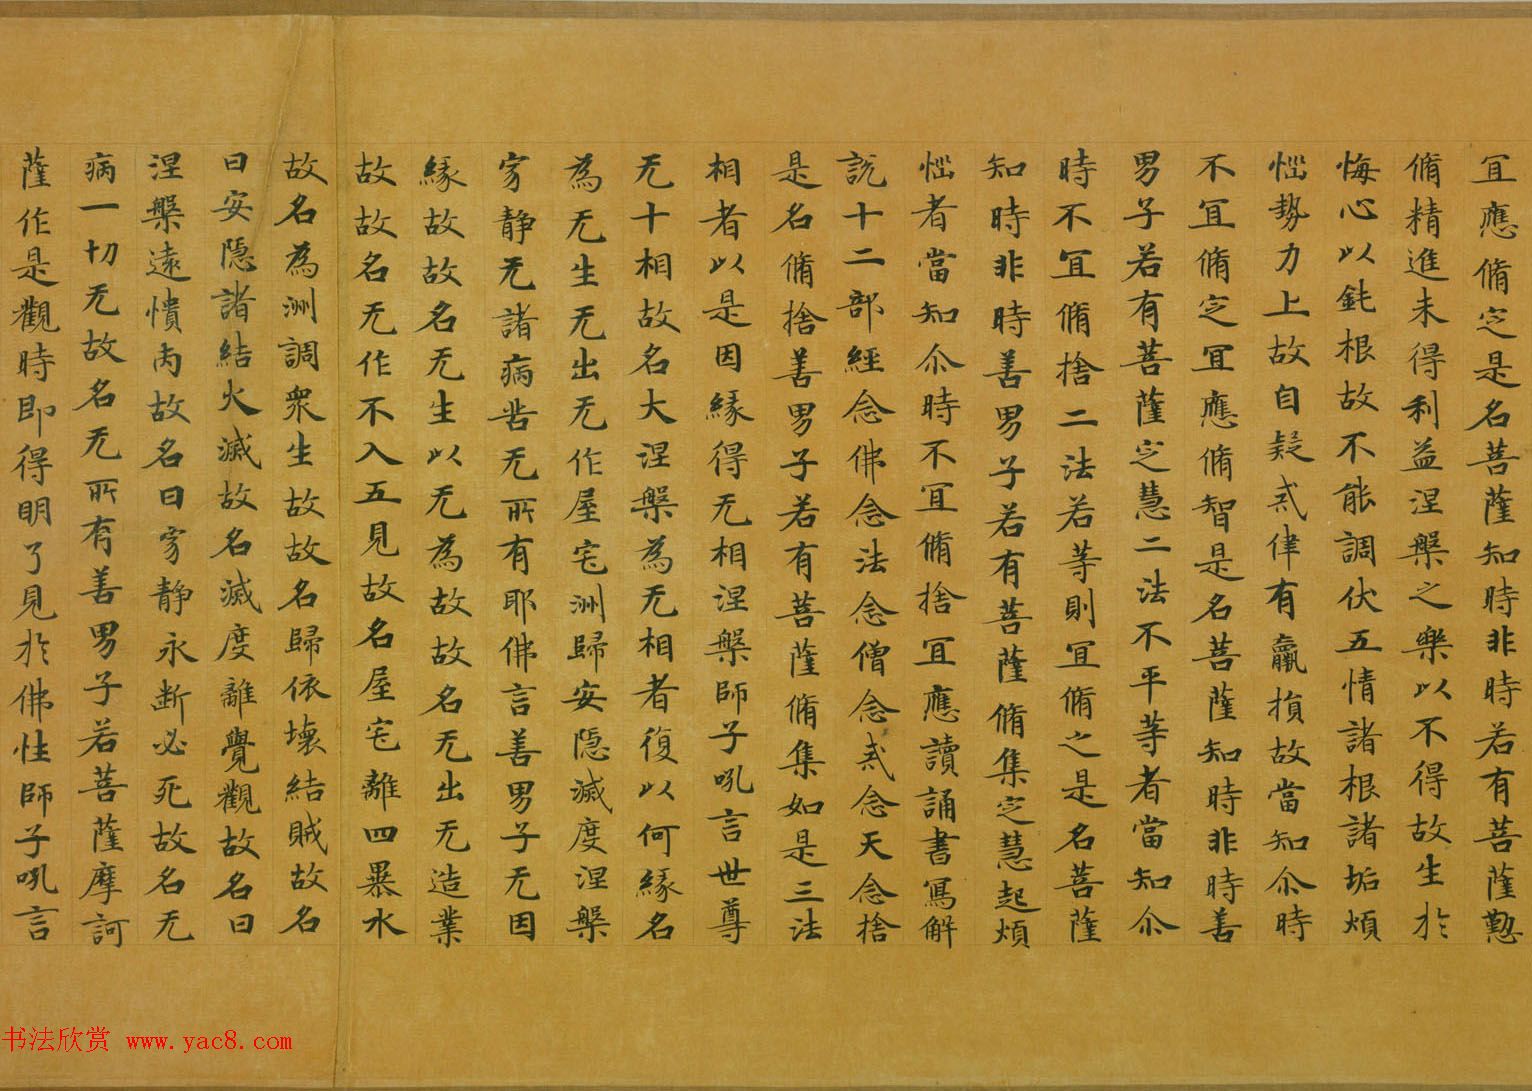 宜應脩定是名菩薩知時非時若有菩薩懃
脩精進未得利益涅槃之樂以不得故生於
悔心以鈍根故不能調伏五情諸根諸垢煩
惱勢力上故自疑戒律有羸損故當知尒時
不宜脩定宜應脩智是名菩薩知時非時善
男子若有菩薩定慧二法不平等者當知尒
時不宜脩捨二法若等則宜脩之是名菩薩
知時非時善男子若有菩薩脩集定慧起煩
惱者當知尒時不宜脩捨宜應讀誦書寫解
說十二部經念佛念法念僧念戒念天念捨
是名脩捨善男子若有菩薩脩集如是三法
相者以是因緣得无相涅槃師子吼言世尊
无十相故名大涅槃為无相者復以何緣名
為无生无出无作屋宅洲歸安隱滅度涅槃
寂静无諸病苦无所有耶佛言善男子无因
緣故故名无生以无為故故名无出无造業
故故名无作不入五見故名屋宅離四暴水
故名為洲調衆生故故名歸依壞結賊故名
曰安隱諸結火滅故名滅度離覺觀故名曰
涅槃遠憒丙故名曰寂静永断必死故名无
病一切无故名无所有善男子若菩薩摩訶
薩作是觀時即得明了見於佛性師子吼言
书法欣赏 www.yac8.com